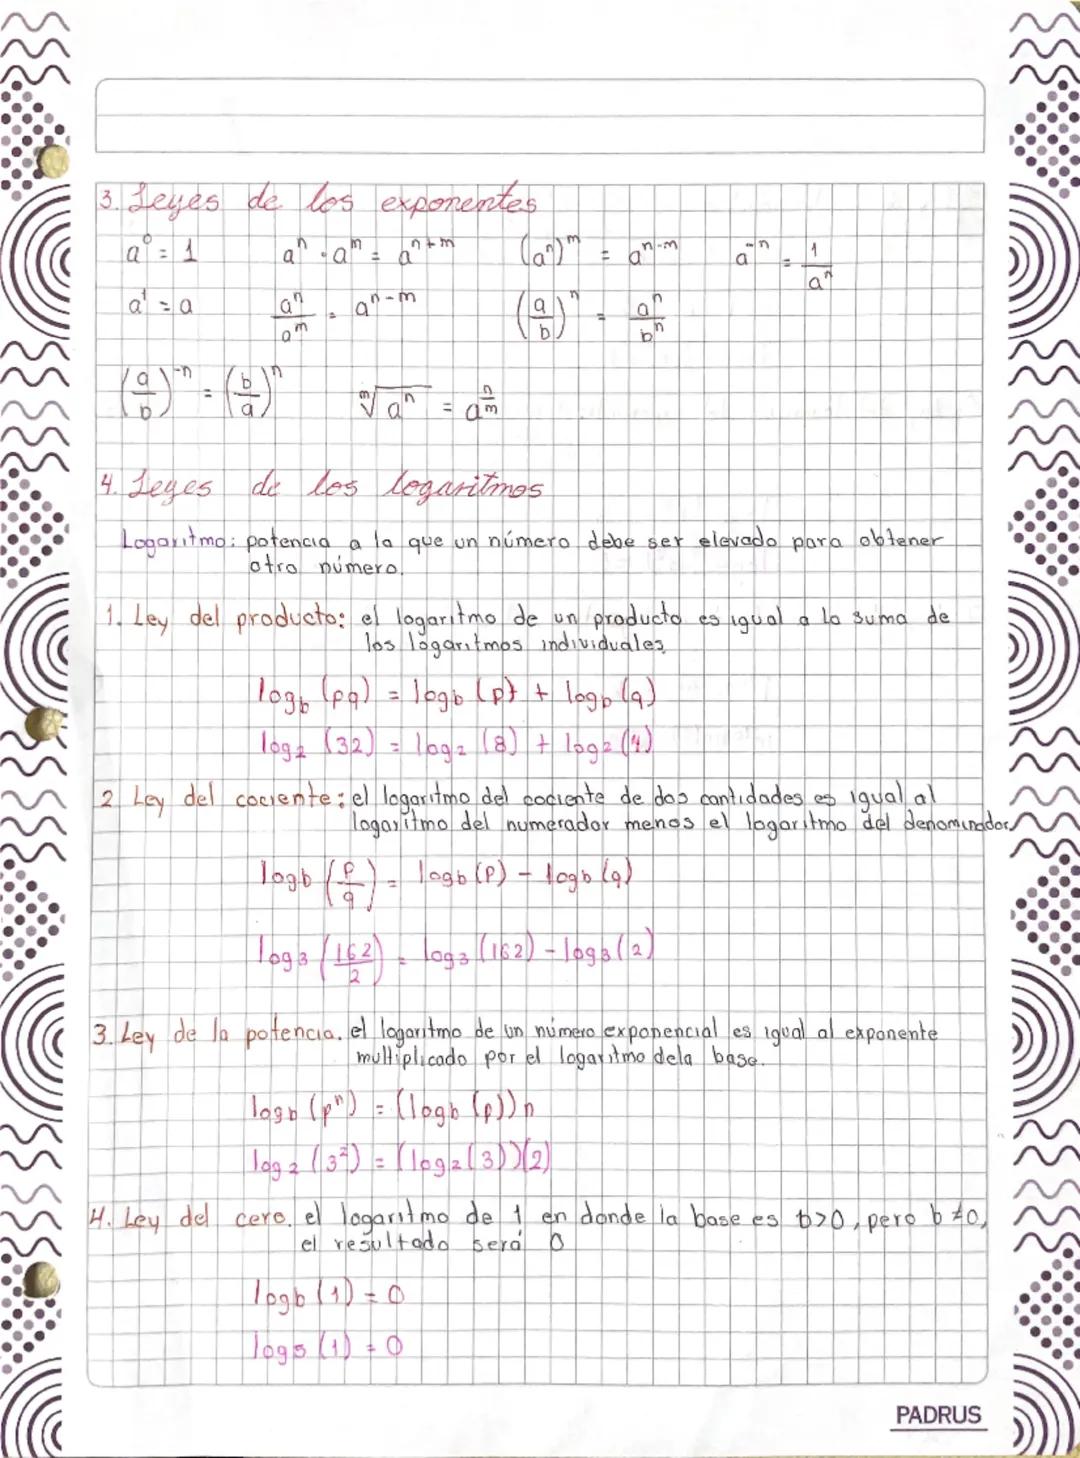 3. Leyes de los exponentes
a⁰ = 1   aⁿ · aᵐ = aⁿ⁺ᵐ   (aⁿ)ᵐ = aⁿ·ᵐ   a⁻ⁿ = 1/aⁿ
a¹ = a   aⁿ/aᵐ = aⁿ⁻ᵐ   (a/b)ⁿ = aⁿ/bⁿ
(a/b)⁻ⁿ = (b/a)ⁿ   ᵐ√aⁿ = a^(n/m)
4. Leyes de los logaritmos
Logaritmo: potencia a la que un número debe ser elevado para obtener
otro número.
1. Ley del producto: el logaritmo de un producto es igual a la suma de
los logaritmos individuales
log_b (pq) = log_b (p) + log_b (q)
log₂ (32) = log₂ (8) + log₂ (4)
2 Ley del cociente: el logaritmo del cociente de dos cantidades es igual al
logaritmo del numerador menos el logaritmo del denominador.
log_b (p/q) = log_b (p) - log_b (q)
log₃ (162/2) = log₃ (162) - log₃ (2)
3. Ley de la potencia. el logaritmo de un número exponencial es igual al exponente
multiplicado por el logaritmo dela base.
log_b (pⁿ) = (log_b (p)) n
log₂ (3²) = (log₂ (3)) (2)
4. Ley del cero. el logaritmo de 1 en donde la base es b>0, pero b ≠0,
el resultado será 0
log_b (1) = 0
log₅ (1) = 0
PADRUS